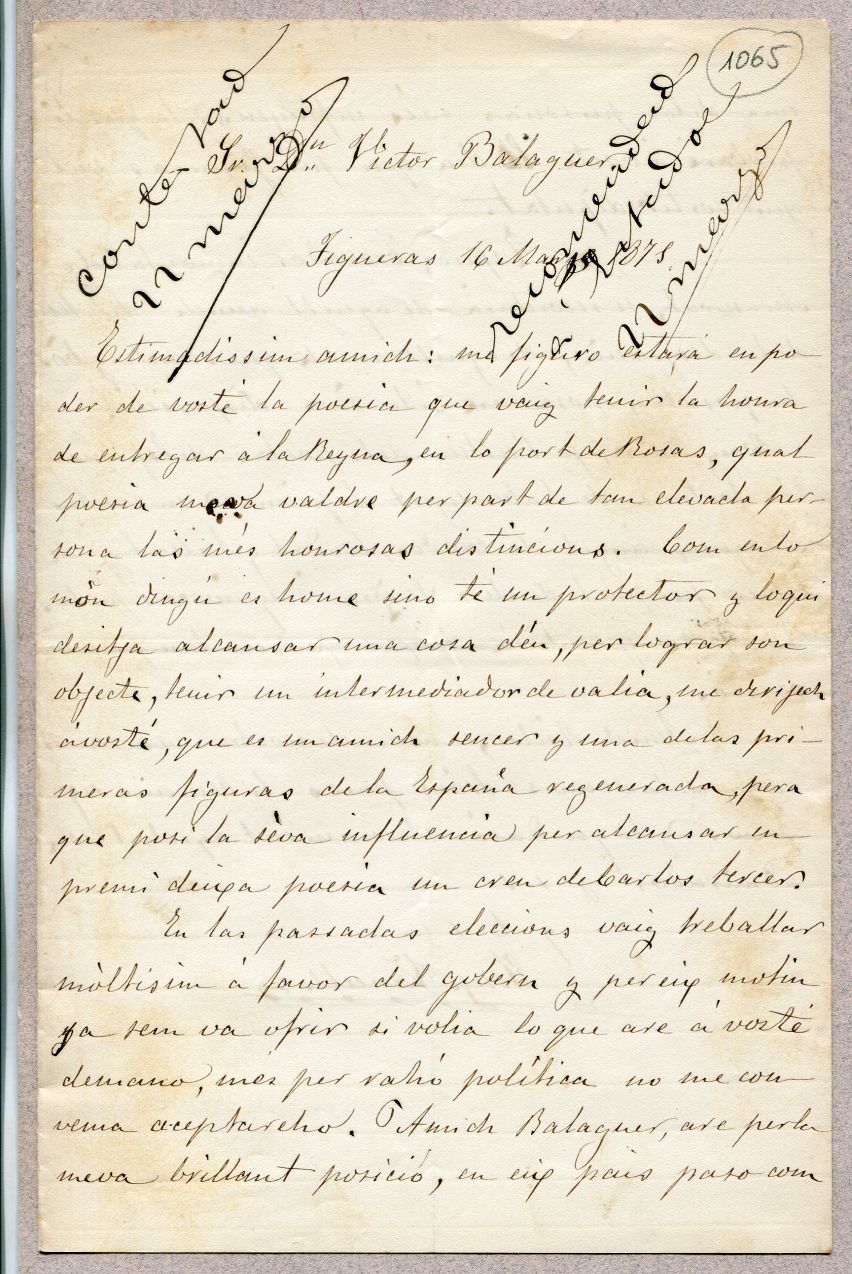 1065
contestad
22 marzo
recomendad
á Estado
22 marzo
Sr. Dn Victor Balaguer
Figueras 16 Mars 1871
Estimadissim amich: me figuro estará en po-
der de vosté la poesia que vaig tenir la honra
de entregar á la Reyna, en lo port de Rosas, qual
poesia me va valdre per part de tan elevada per-
sona las més honrosas distincions. Com en lo
món dingú es home sino té un protector y lo qui
desitja alcansar una cosa déu, per lograr son
objecte, tenir un intermediador de valia, me dirijech
á vosté, que es un amich sencer y una de las pri-
meras figuras de la España regenerada, pera
que posi la séva influencia per alcansar en
premi deixa poesia un creu de Carlos tercer.
En las passadas eleccions vaig treballar
móltisim á favor del gobern y per eix motiu
ja sem va ofrir si volia lo que are á vosté
demano, més per rahó política no me con-
venia aceptareho. Amich Balaguer, are per la
meva brillant posició, en eix pais paso com